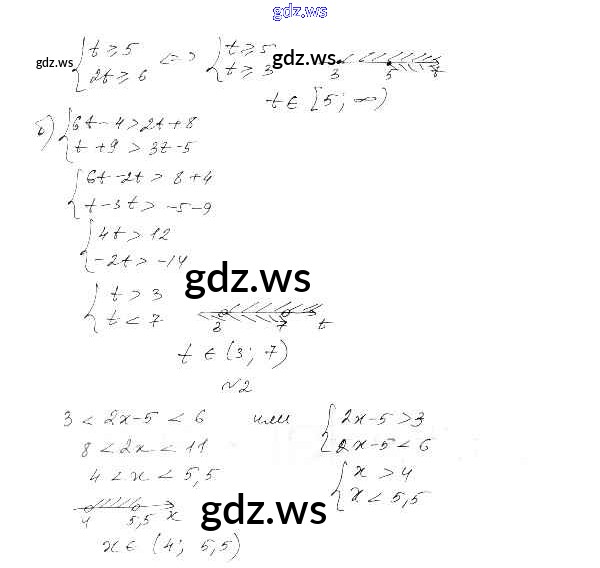 gdz.ws
{ t ≥ 5 <=> { t ≥ 5
{ 2t ≥ 6 { t ≥ 3
gdz.ws gdz.ws
3 5 t
t ∈ [5; ∞)
б) { 6t - 4 > 2t + 8
{ t + 9 > 3t - 5
{ 6t - 2t > 8 + 4
{ t - 3t > -5 - 9
{ 4t > 12
{ -2t > -14
gdz.ws
{ t > 3
{ t < 7
3 7 t
t ∈ (3; 7)
N2
3 < 2x - 5 < 6 или { 2x - 5 > 3
8 < 2x < 11 { 2x - 5 < 6
4 < x < 5,5 { x > 4
{ x < 5,5
4 5,5 x
gdz.ws
x ∈ (4; 5,5)